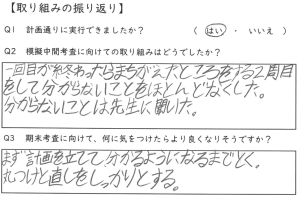 【取り組みの振り返り】
Q1 計画通りに実行できましたか？ （ はい ・ いいえ ）
Q2 模擬中間考査に向けての取り組みはどうでしたか？
一回目が終わったらまちがえたところをする2周目
をして分からないことをほとんどなくした。
分からないことは先生に聞いた。
Q3 期末考査に向けて、何に気をつけたらより良くなりそうですか？
まず計画を立てて分かるようになるまでとく。
丸つけと直しをしっかりとする。